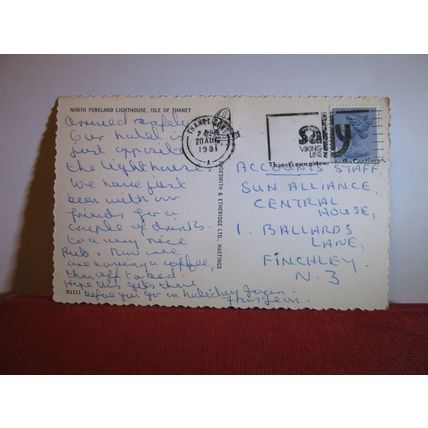 NORTH FORELAND LIGHTHOUSE, ISLE OF THANET
Arrived safely
Our hotel is
just opposite
the lighthouse.
We have just
been with our
friends for a
couple of drinks
to a very nice
Pub. Now we
are having a coffee,
then off to bed.
Hope this gets there
before you go on holiday
N1111
& ETHERIDGE LTD., HASTINGS
THANET
20 AUG
1981
A
sally
VIKING
LINE
Thanet's own
ACCOUNTS STAFF
SUN ALLIANCE,
CENTRAL
HOUSE,
1. BALLARDS
LANE,
FINCHLEY.
N.3